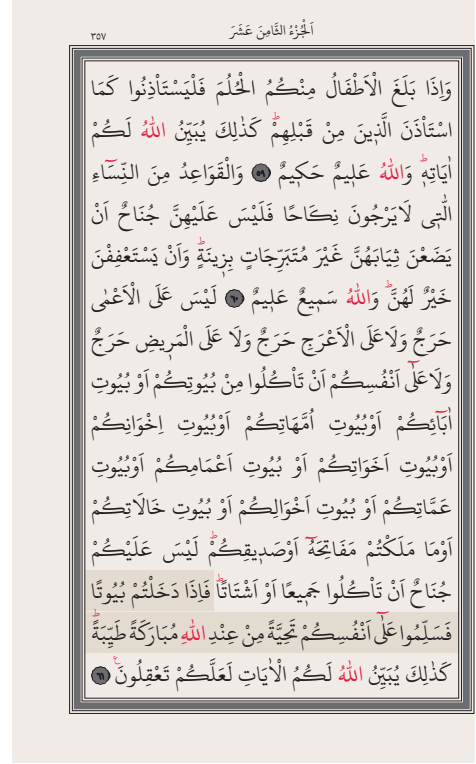 اَلْجُزْءُ الثَّامِنَ عَشَرَ
٣٥٧
وَاِذَا بَلَغَ الْاَطْفَالُ مِنْكُمُ الْحُلُمَ فَلْيَسْتَاْذِنُوا كَمَا
اسْتَاْذَنَ الَّذٖينَ مِنْ قَبْلِهِمْؕ كَذٰلِكَ يُبَيِّنُ اللّٰهُ لَكُمْ
اٰيَاتِهٖؕ وَاللّٰهُ عَلٖيمٌ حَكٖيمٌ ﴿٥٩﴾ وَالْقَوَاعِدُ مِنَ النِّسَٓاءِ
الّٰتٖى لَايَرْجُونَ نِكَاحًا فَلَيْسَ عَلَيْهِنَّ جُنَاحٌ اَنْ
يَضَعْنَ ثِيَابَهُنَّ غَيْرَ مُتَبَرِّجَاتٍ بِزٖينَةٍؕ وَاَنْ يَسْتَعْفِفْنَ
خَيْرٌ لَهُنَّؕ وَاللّٰهُ سَمٖيعٌ عَلٖيمٌ ﴿٦٠﴾ لَيْسَ عَلَى الْاَعْمٰى
حَرَجٌ وَلَاعَلَى الْاَعْرَجِ حَرَجٌ وَلَا عَلَى الْمَرٖيضِ حَرَجٌ
وَلَاعَلٰٓى اَنْفُسِكُمْ اَنْ تَاْكُلُوا مِنْ بُيُوتِكُمْ اَوْ بُيُوتِ
اٰبَٓائِكُمْ اَوْبُيُوتِ اُمَّهَاتِكُمْ اَوْبُيُوتِ اِخْوَانِكُمْ
اَوْبُيُوتِ اَخَوَاتِكُمْ اَوْ بُيُوتِ اَعْمَامِكُمْ اَوْبُيُوتِ
عَمَّاتِكُمْ اَوْ بُيُوتِ اَخْوَالِكُمْ اَوْ بُيُوتِ خَالَاتِكُمْ
اَوْمَا مَلَكْتُمْ مَفَاتِحَهُٓ اَوْصَدٖيقِكُمْؕ لَيْسَ عَلَيْكُمْ
جُنَاحٌ اَنْ تَاْكُلُوا جَمٖيعًا اَوْ اَشْتَاتًاؕ فَاِذَا دَخَلْتُمْ بُيُوتًا
فَسَلِّمُوا عَلٰٓى اَنْفُسِكُمْ تَحِيَّةً مِنْ عِنْدِ اللّٰهِ مُبَارَكَةً طَيِّبَةًؕ
كَذٰلِكَ يُبَيِّنُ اللّٰهُ لَكُمُ الْاٰيَاتِ لَعَلَّكُمْ تَعْقِلُونَࣖ ﴿٦١﴾